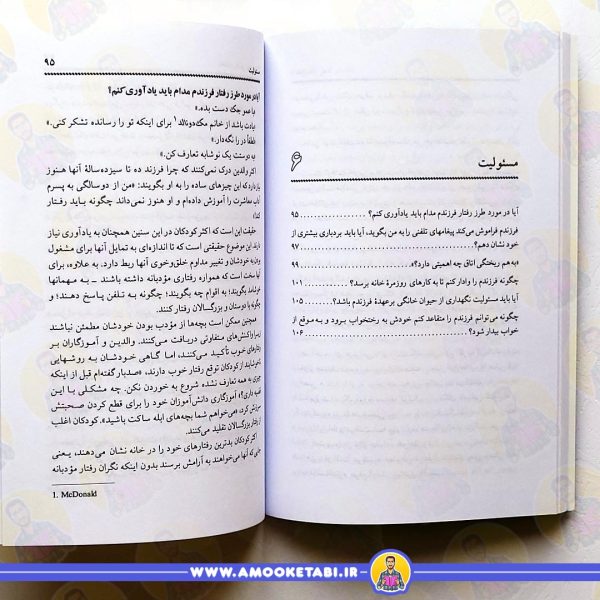 ۶
مسئولیت
آیا در مورد طرز رفتار فرزندم مدام باید یادآوری کنم؟ ۹۵
فرزندم فراموش می‌کند پیغامهای تلفنی را به من بگوید، آیا باید بردباری بیشتری از
خود نشان دهم؟ ۹۷
«به هم ریختگی اتاق چه اهمیتی دارد؟» ۹۹
چگونه فرزندم را وادار کنم تا به کارهای روزمرهٔ خانه برسد؟ ۱۰۱
آیا باید مسئولیت نگهداری از حیوان خانگی برعهدهٔ فرزندم باشد؟ ۱۰۵
چگونه می‌توانم فرزندم را متقاعد کنم خودش به رختخواب برود و به موقع از
خواب بیدار شود؟ ۱۰۶
مسئولیت ۹۵
آیا در مورد طرز رفتار فرزندم مدام باید یادآوری کنم؟
با عمو جک دست بده.»
یادت باشد از خانم مک‌دونالد۱ برای اینکه تو را رسانده تشکر کنی.»
لطفاً در را نگه‌دار.»
به دوستت یک نوشابه تعارف کن.»
اکثر والدین درک نمی‌کنند که چرا فرزند ده تا سیزده‌سالهٔ آنها هنوز
نیاز دارد که این چیزهای ساده را به او بگویند: «من از دوسالگی به پسرم
آداب معاشرت را آموزش داده‌ام و او هنوز نمی‌داند چگونه باید رفتار
کند!»
حقیقت این است که اکثر کودکان در این سنین همچنان به یادآوری نیاز
دارند. این موضوع حقیقتی است که تا اندازه‌ای به تمایل آنها برای مشغول
بودن به خودشان و تغییر مداوم خلق‌وخوی آنها ربط دارد. به علاوه، برای
آنها سخت است که همواره رفتاری مؤدبانه داشته باشند ـ به مهمانها
خوشامد بگویند؛ به اقوام چه بگویند؛ چگونه به تلفن پاسخ دهند؛ و
چگونه با دوستان و بزرگسالان رفتار کنند.
همچنین ممکن است بچه‌ها از مؤدب بودن خودشان مطمئن نباشند
زیرا واکنش‌های متفاوتی دریافت می‌کنند. والدین و آموزگاران بر
رفتارهای خوب تأکید می‌کنند، اما گاهی خودشان به روشهایی
ناخوشایند از کودکان توقع رفتار خوب دارند. «صدبار گفته‌ام قبل از اینکه
چیزی به همه تعارف نشده شروع به خوردن نکن. چه مشکلی با این
قضیه داری؟» آموزگاری دانش‌آموزان خود را برای قطع کردن صحبتش
سرزنش کرد، «می‌خواهم شما بچه‌های ابله ساکت باشید». کودکان اغلب
از رفتار بزرگسالان تقلید می‌کنند.
اکثر کودکان بدترین رفتارهای خود را در خانه نشان می‌دهند، یعنی
جایی که آنها می‌خواهند به آرامش برسند بدون اینکه نگران رفتار مؤدبانه
1. McDonald
WWW.AMOOKETABI.IR